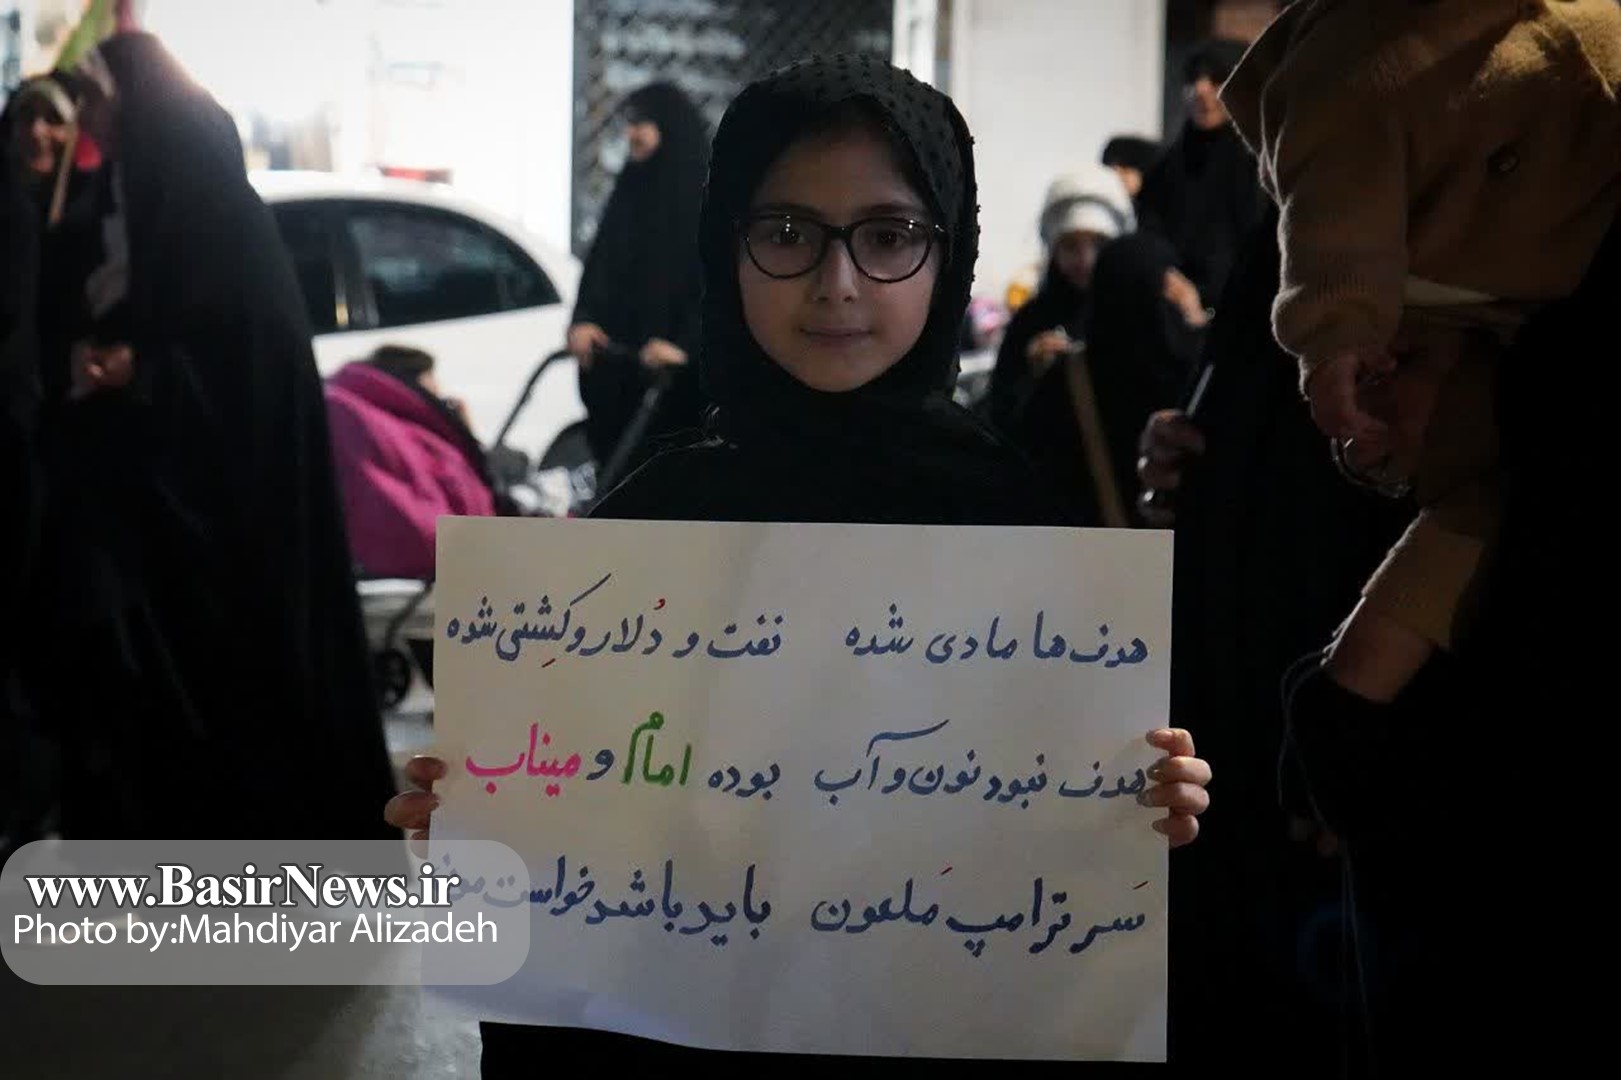 هدف ها مادی شده نفت و دُلار و کِشتی شوه
هدف نبود نون و آب بوده امام و میناب
سَر ترامپ مَلعون باید باشد خواست
www.BasirNews.ir
Photo by:Mahdiyar Alizadeh